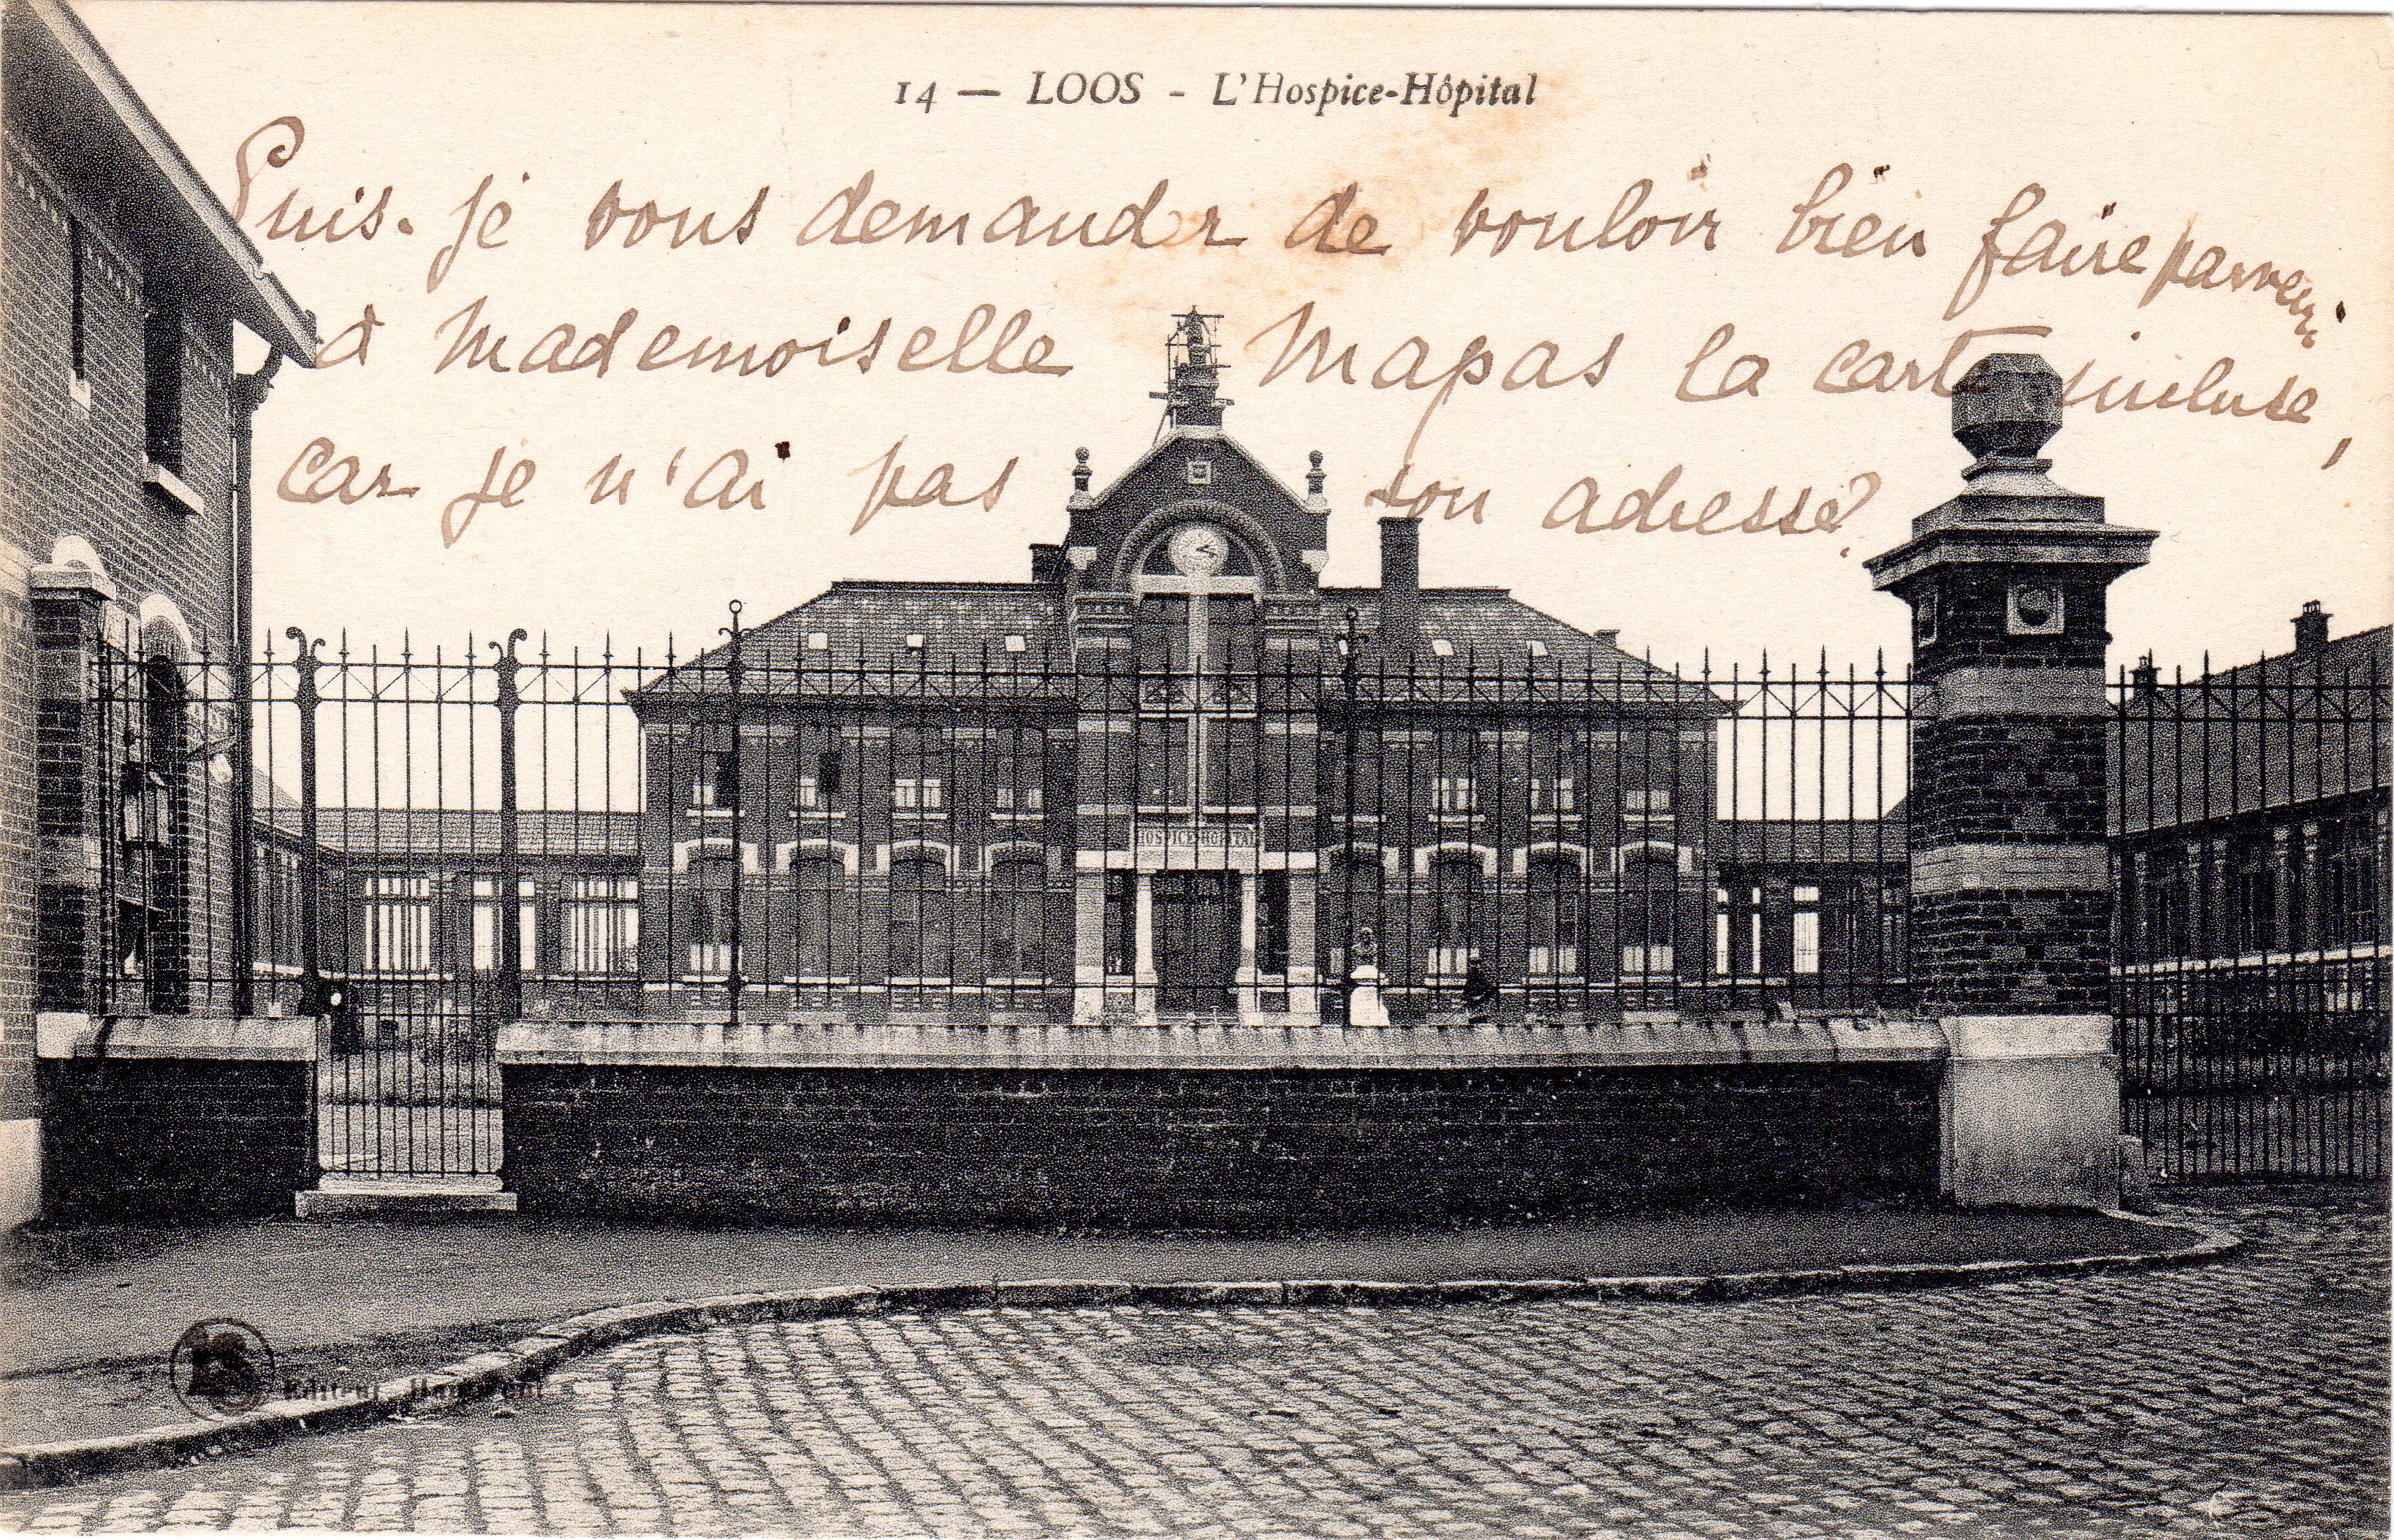 14 — LOOS - L'Hospice-Hôpital
Puis-je vous demander de vouloir bien faire parvenir
à Mademoiselle Mapas la carte incluse,
car je n'ai pas son adresse?
HOSPICE-HOPITAL
Editeur